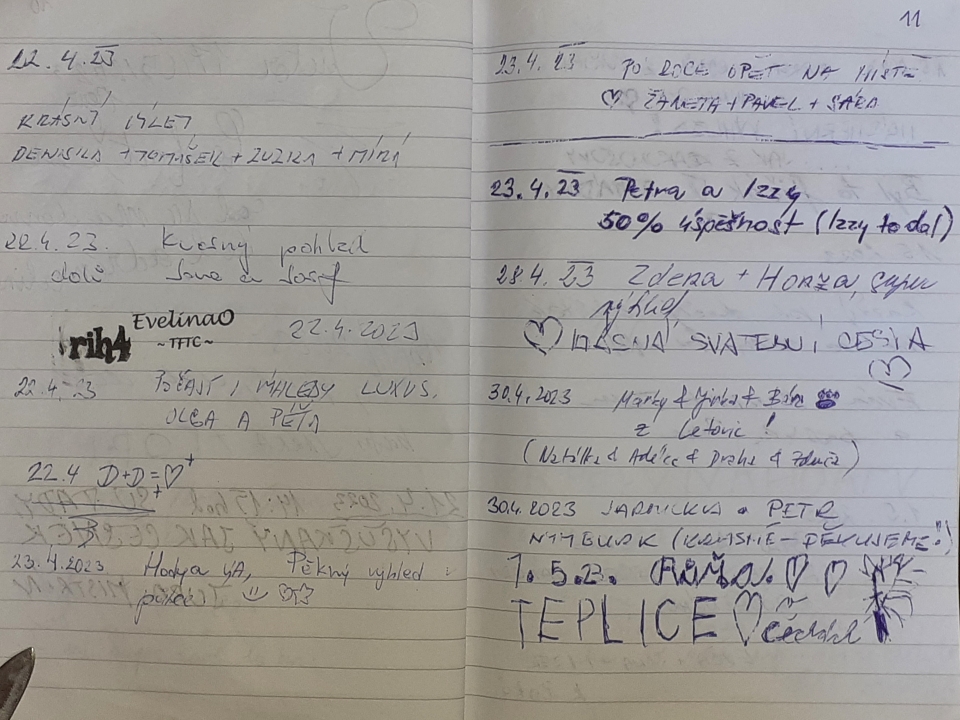 22.4.23
KRÁSNÝ VÝLET
DENISKA + TOMÁŠEK + ZUZKA + MÍRA
22.4.23. Krásný pohled
dolů Jana a Josef
rih4 EvelinaO
~TFTC~
22.4.2023
22.4.23 POČASÍ I VÝHLEDY LUXUS.
OLGA A PÉŤA
22.4 D+D=♡
23.4.2023 Pěkný výhled
11
23.4.23 PO ROCE OPĚT NA MÍSTĚ
♡ ŽANETA + PAVEL + SÁRA
23.4.23 Petra a Izzy
50% úspěšnost (Izzy to dal)
28.4.23 Zdena + Honza, super
výhled
♡ KRÁSNÁ SVATEBNÍ CESTA
♡
30.4.2023 & Jirka & Bára
z Letovic!
(& & Draha &)
30.4.2023 JARMILKA a PETR
NYMBURK (KRÁSNÉ - DĚKUJEME!)
1.5.23. ♡ ♡
TEPLICE ♡